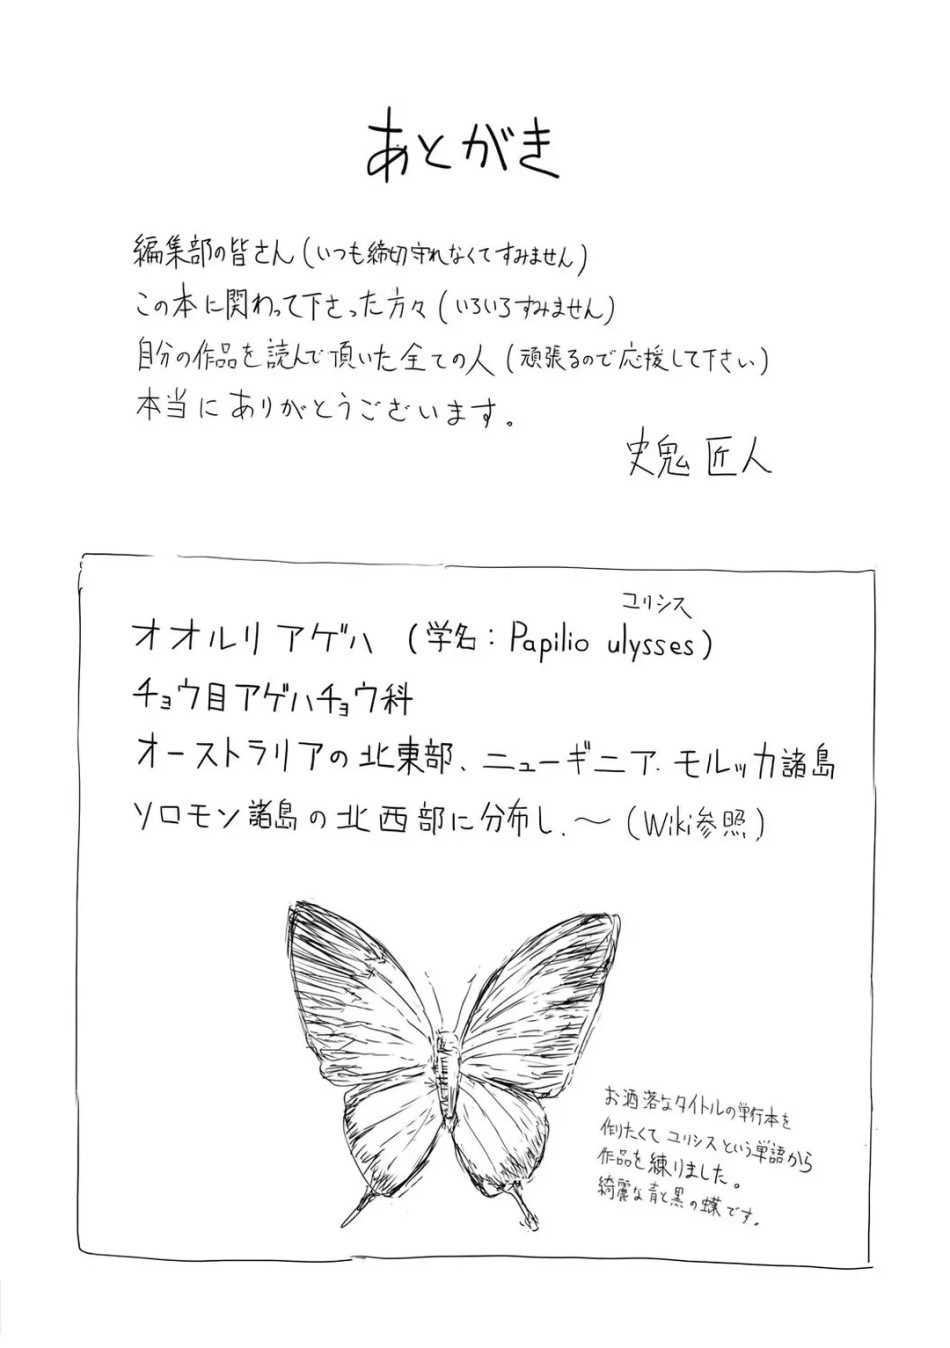 あとがき
編集部の皆さん(いつも締切守れなくてすみません)
この本に関わって下さった方々(いろいろすみません)
自分の作品を読んで頂いた全ての人(頑張るので応援して下さい)
本当にありがとうございます。
史鬼 匠人
ユリシス
オオルリアゲハ(学名:Papilio ulysses)
チョウ目アゲハチョウ科
オーストラリアの北東部、ニューギニア、モルッカ諸島
ソロモン諸島の北西部に分布し、〜(Wiki参照)
お洒落なタイトルの単行本を
作りたくてユリシスという単語から
作品を練りました。
綺麗な青と黒の蝶です。